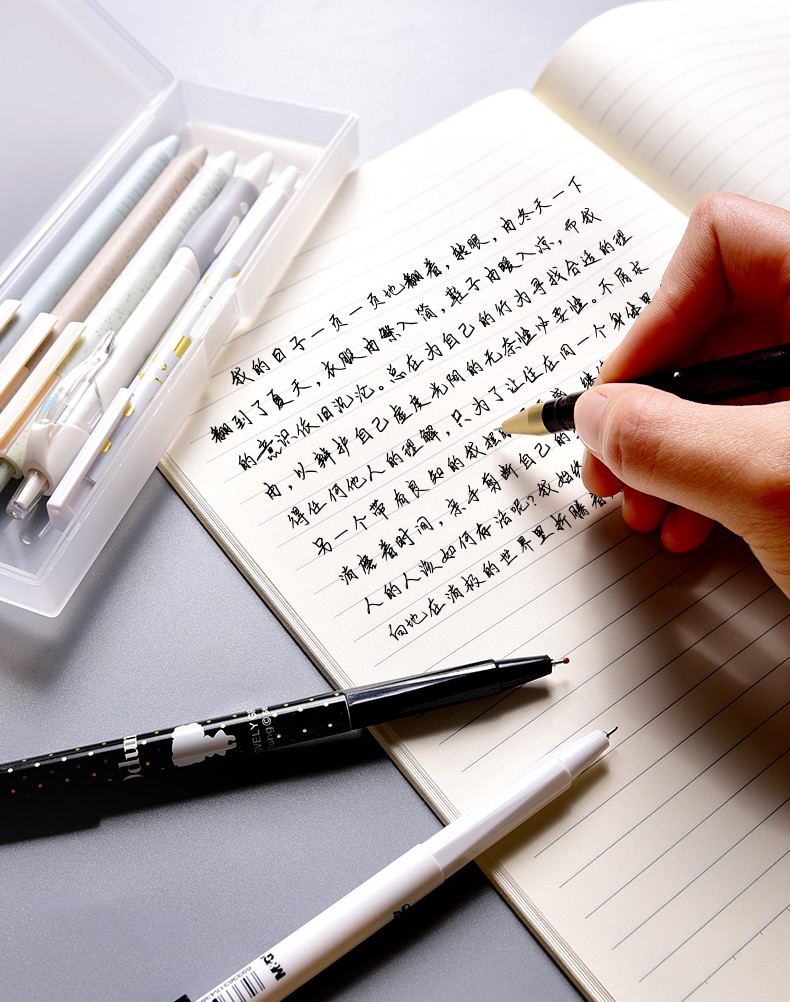 我的日子一页一页地翻着，转眼，由冬天一下
翻到了夏天，衣服由繁入简，鞋子由暖入凉，而我
的意识依旧混沌。总在为自己的行为寻找合适的理
由，以辩护自己虚度光阴的无奈性必要性。不屑求
得任何他人的理解，只为了让住在同一个身体里
另一个带有良知的我
消磨着时间，亲手剪断自己的
人的人该如何存活呢？我始终
向地在消极的世界里折腾着
LOVELY
M&G